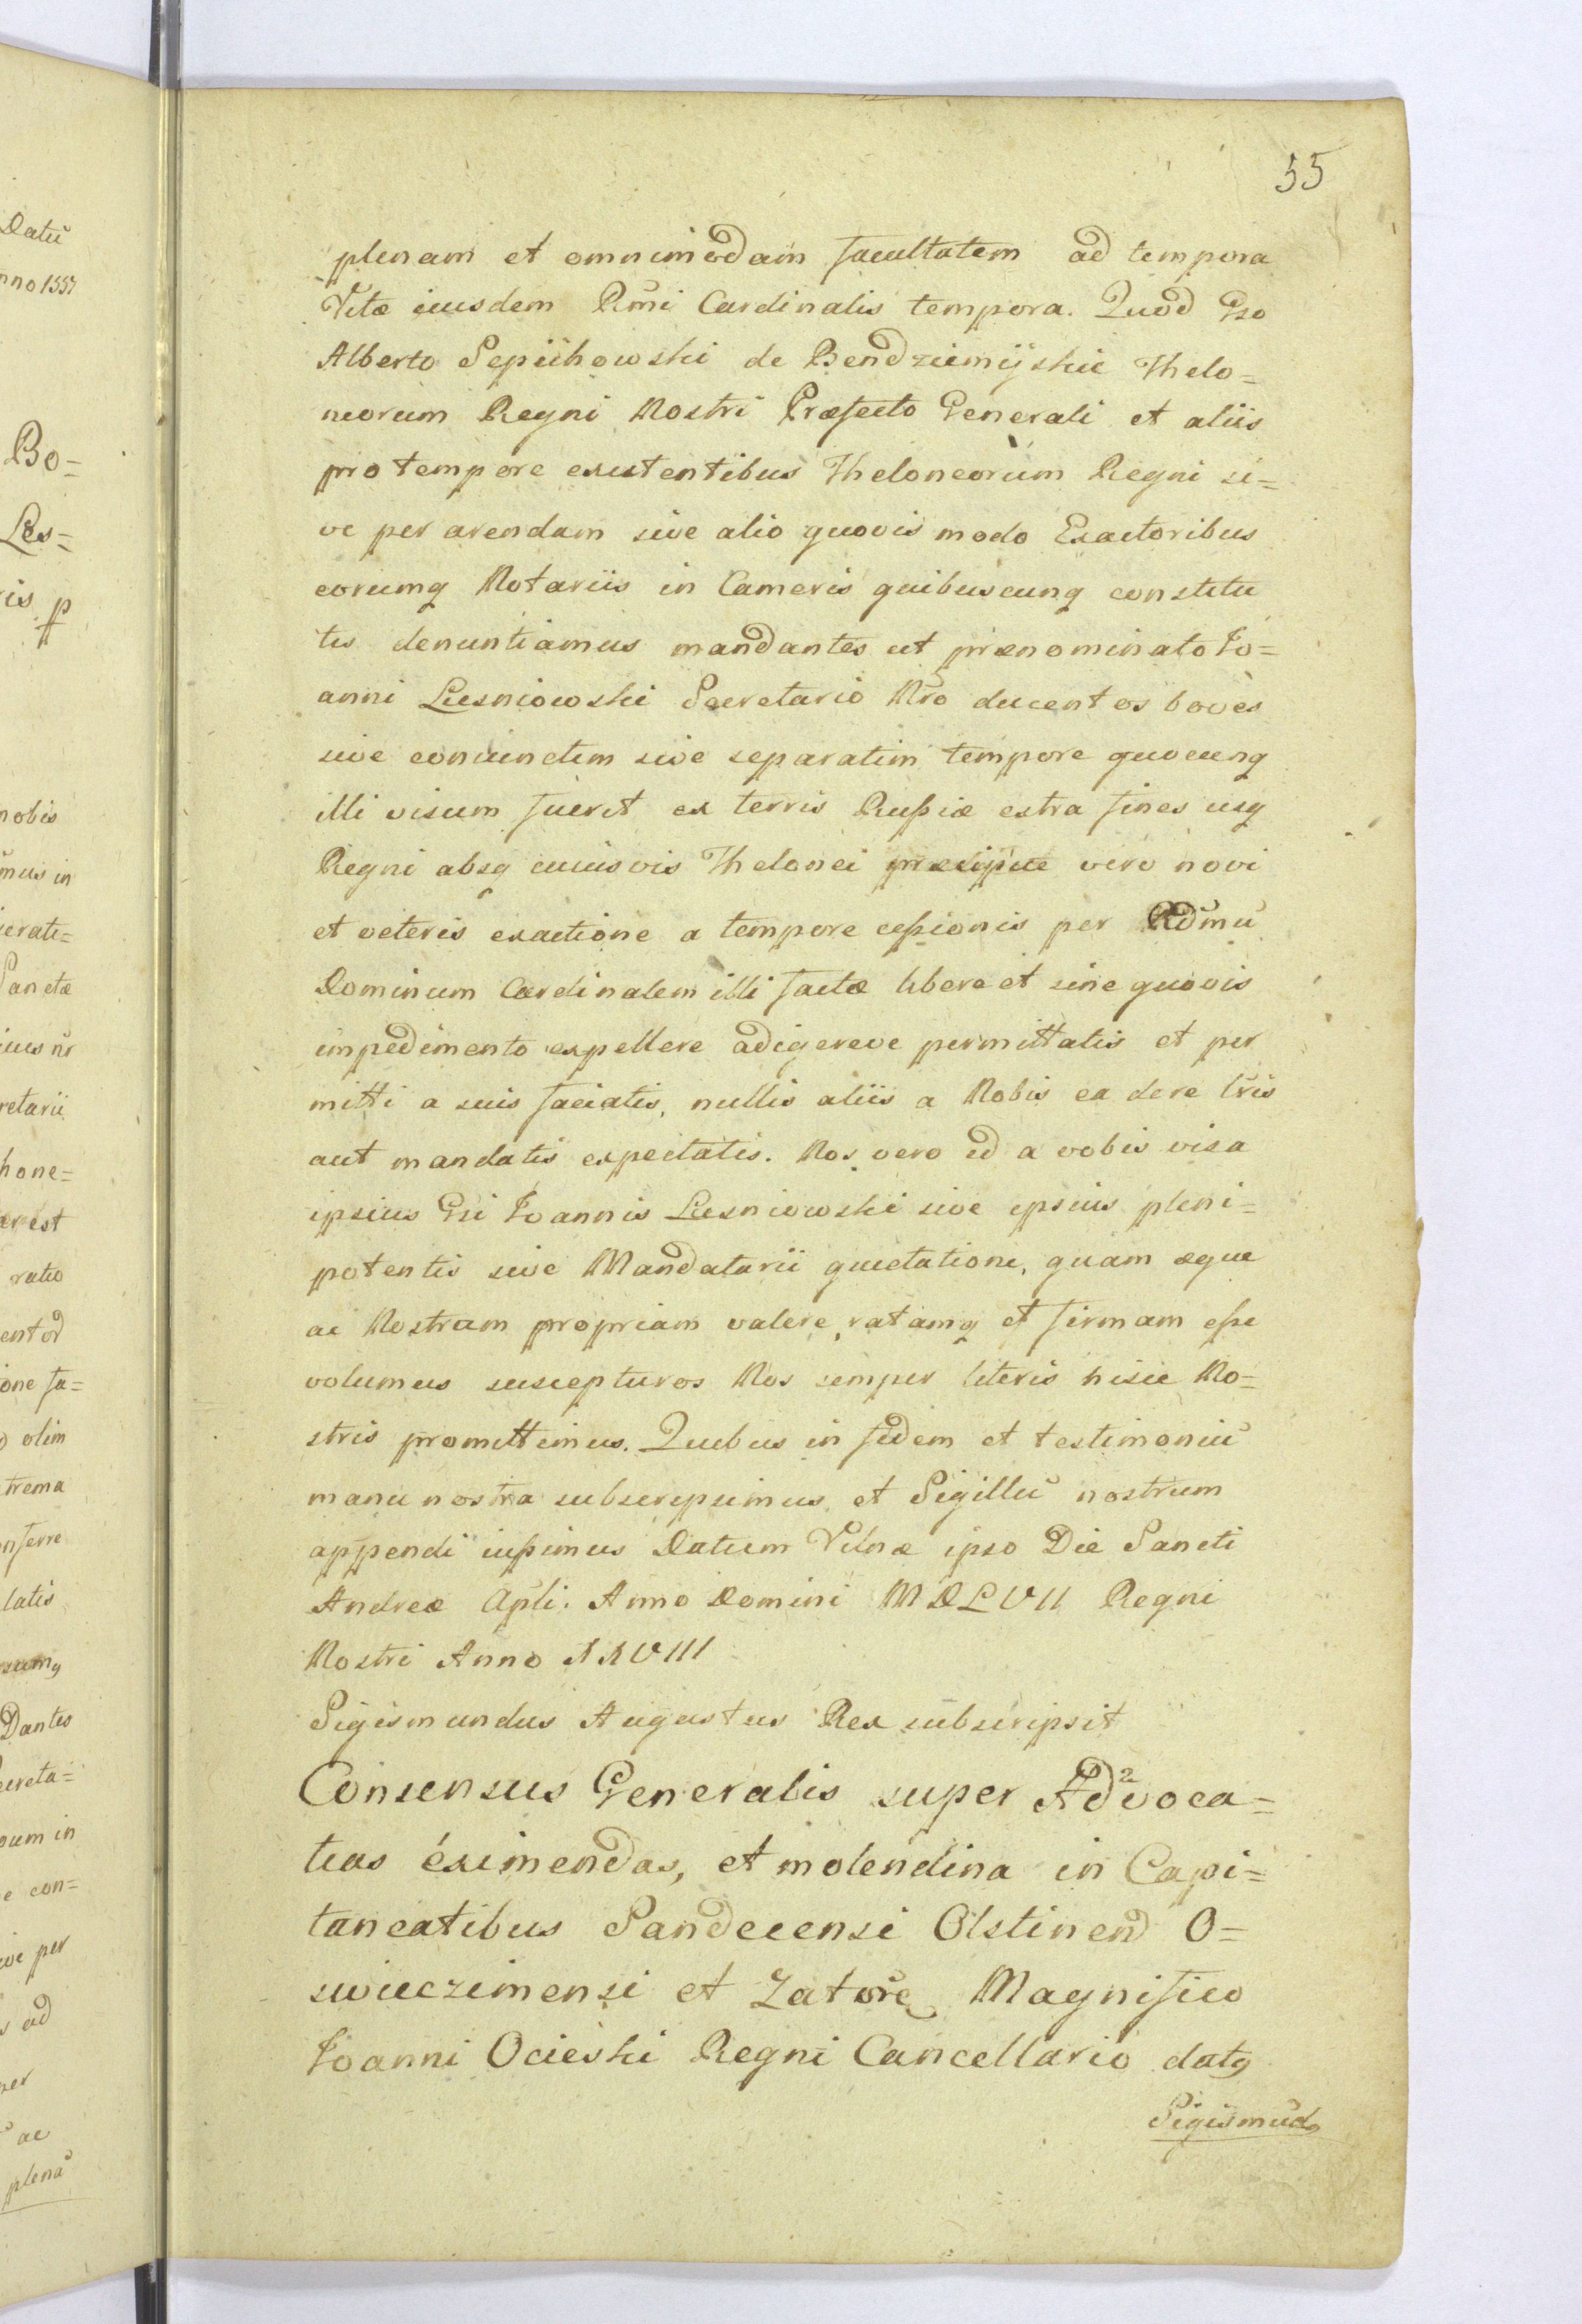 55
plenam et omnimodam facultatem ad tempora
Vitæ eiusdem Rm̃i Cardinalis tempora. Quod Gso
Alberto Sepiihowski de Bendziemÿskie Thelo=
neorum Regni Nostri Præfecto Generali et aliis
pro tempore existentibus Theloneorum Regni si=
ve per arendam sive alio quovis modo Exactoribus
eorumq Notariis in Cameris quibuscunq constitu
tis denuntiamus mandantes ut prænominato Io=
anni Lusniowski Secretario Nro ducentos boves
sive coniunctim sive separatim tempore quocunq
illi visum fuerit ex terris Rußiæ extra fines usq
Regni absq cuiusvis Thelonei præcipue vero novi
et veteris exactione a tempore ceßionis per Rdmũ
Dominum Cardinalem illi factæ libere et sine quovis
impedimento expellere adigereve permittatis et per
mitti a suis faciatis, nullis aliis a Nobis ea de re lr̃is
aut mandatis expectatis. Nos vero id a vobis visa
ipsius Gsi Ioannis Lusniowski sive ipsius pleni=
potentis sive Mandatarii quietatione, quam æque
ac Nostram propriam valere, ratamq et firmam eße
volumus suscepturos Nos semper literis hisce No=
stris promittimus. Quibus in fidem et testimoniũ
manu nostra subscripsimus et Sigillũ nostrum
appendi iußimus Datum Vilnæ ipso Die Sancti
Andreæ Apli. Anno Domini MDLVII Regni
Nostri Anno XXVIII
Sigismundus Augustus Rex subscripsit
Consensus Generalis super Advoca=
tias éximendas, et molendina in Capi=
taneatibus Sandecensi Olstinend O=
swieczimensi et Zatore Magnifico
Ioanni Ocieski Regni Cancellario datq
Sigismũdq
Datũ
nno 1557
Bo=
Les=
ris p
nobis
mus in
Sanctæ
retarii
hone=
ratio
one fa=
olim
trema
nferre
latis
Dantes
creta=
oum in
e con=
per
ad
ac
plenã